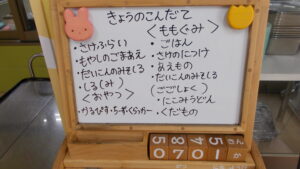 きょうのこんだて
・さけふらい
・もやしのごまあえ
・だいこんのみそしる
・しる(み)
〈おやつ〉
・かるぴす・ちーず・くらっかー
〈ももぐみ〉
・ごはん
・さけのにつけ
・あえもの
・だいこんのみそしる
(ごごしょく)
・にこみうどん
・くだもの